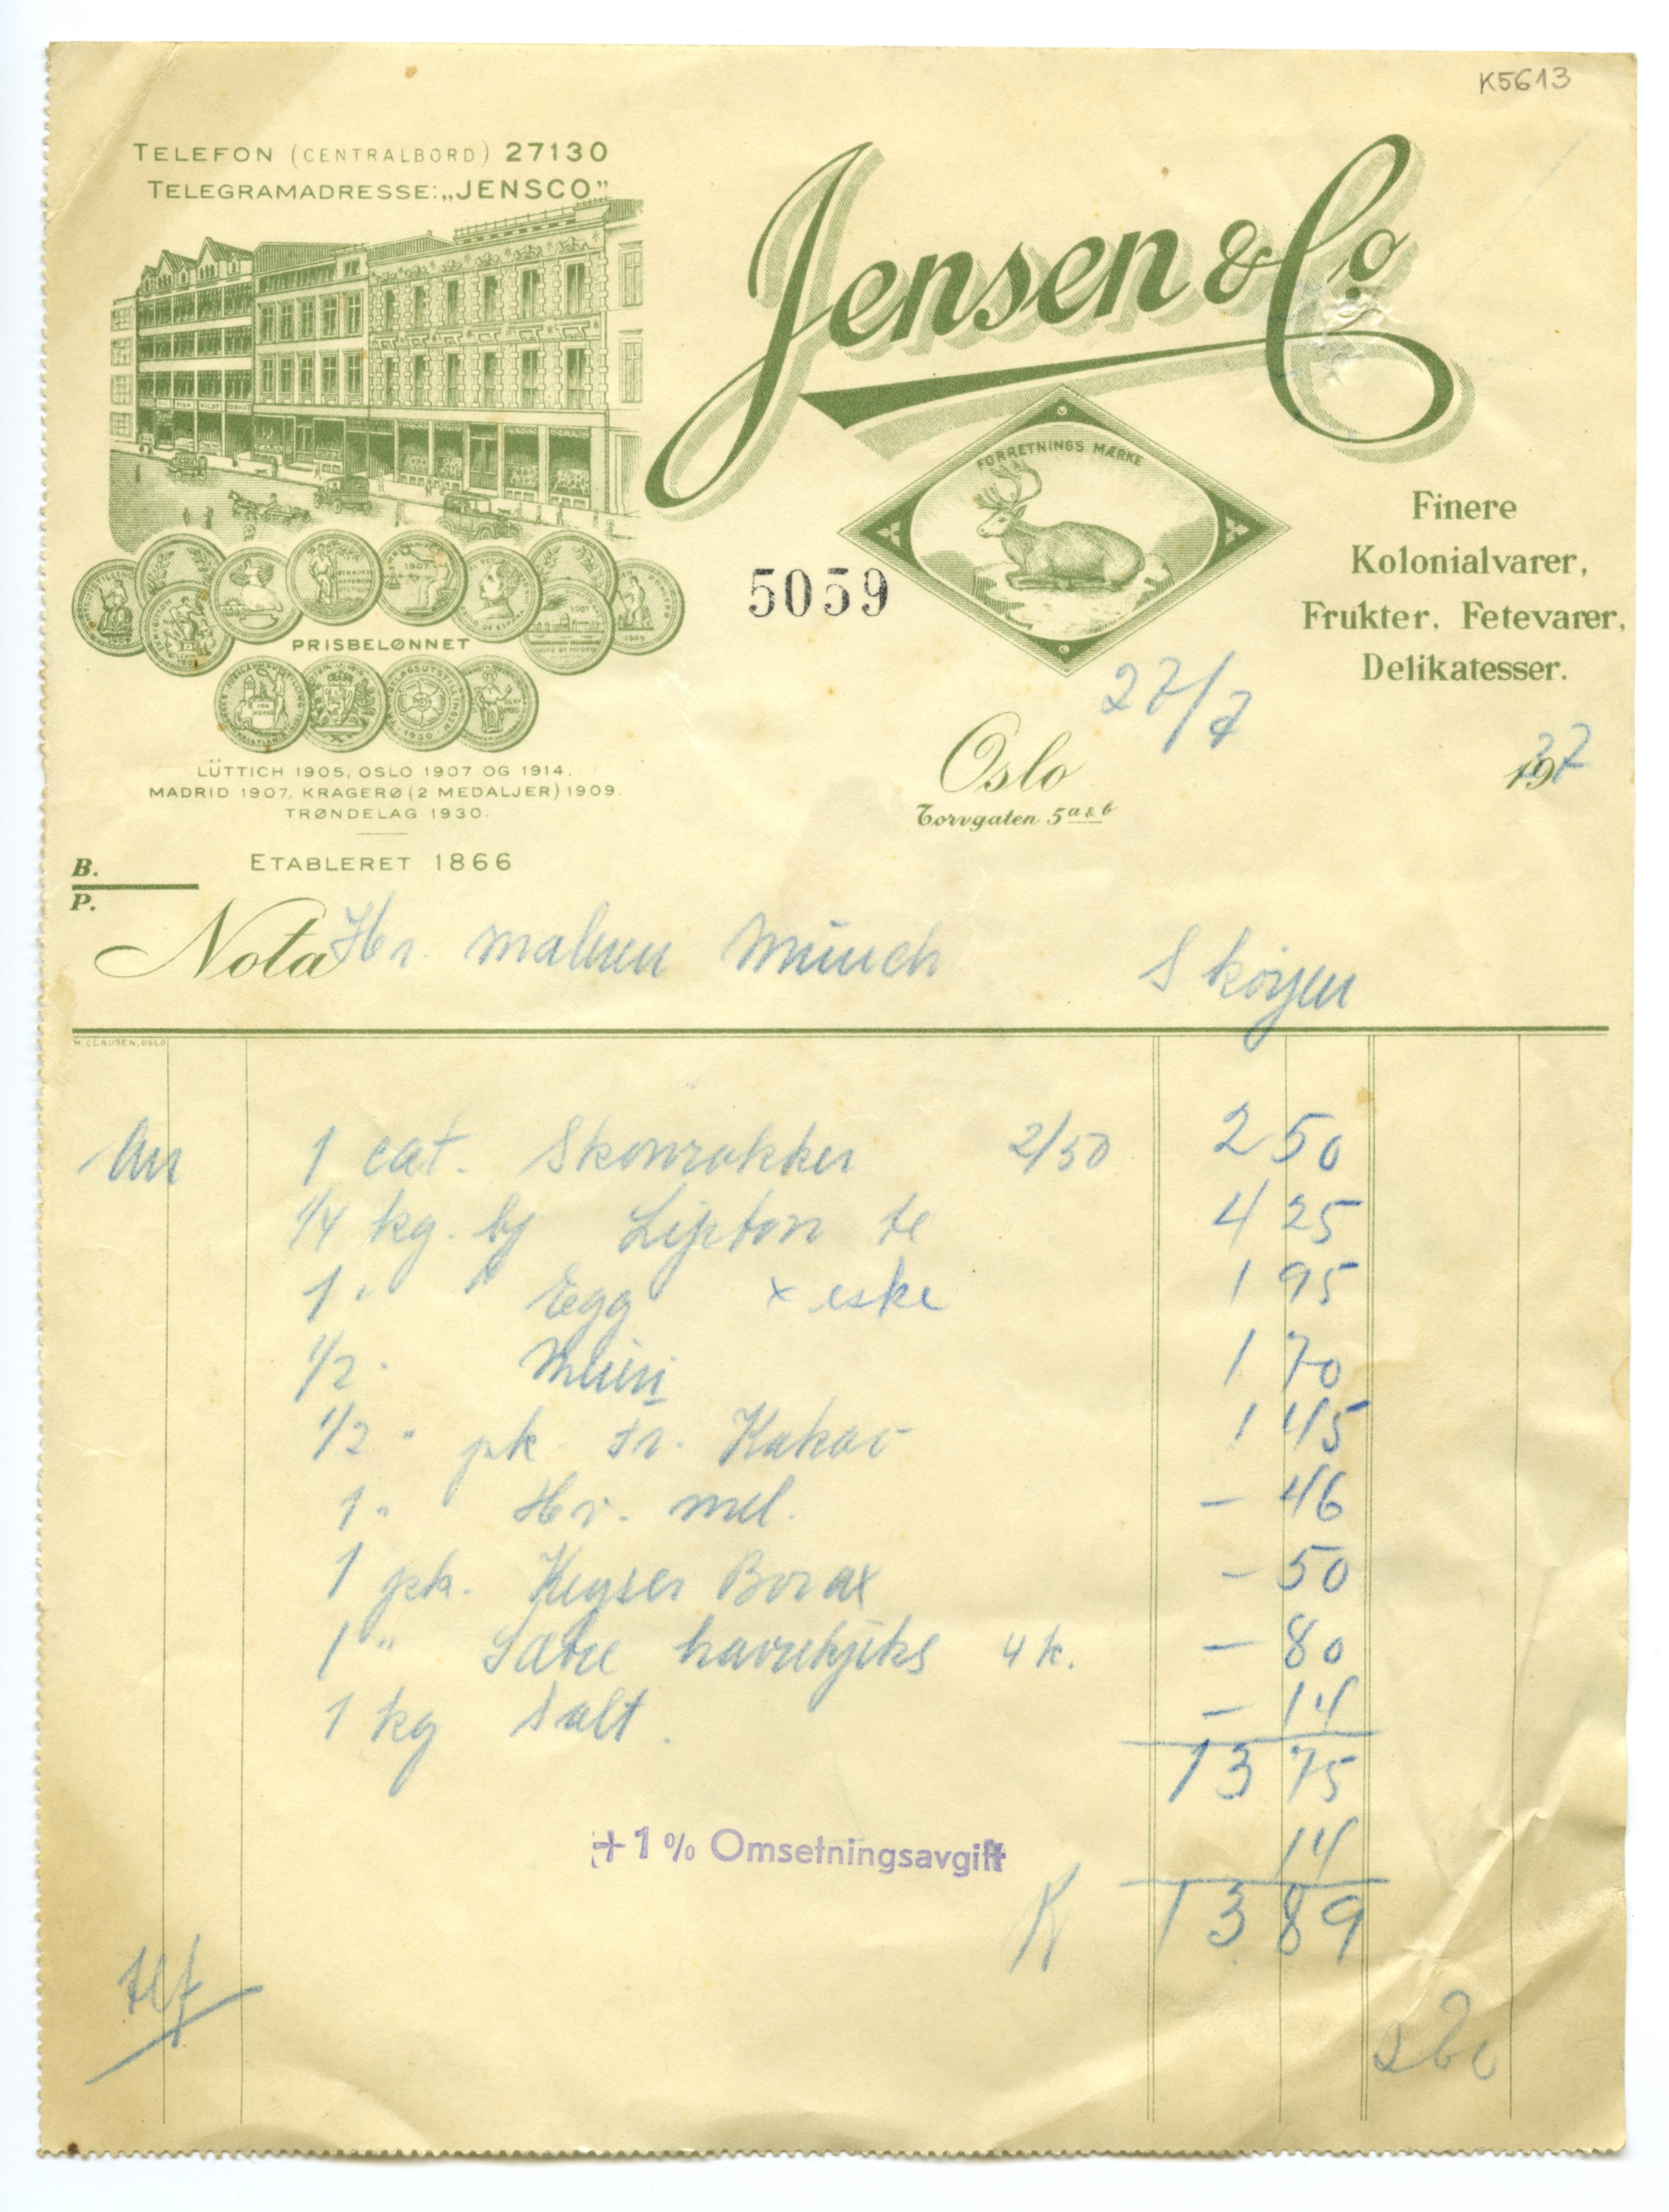 K5613
TELEFON (CENTRALBORD) 27130
TELEGRAMADRESSE: „JENSCO”
Jensen & Co.
FORRETNINGS MÆRKE
Finere
Kolonialvarer,
Frukter, Fetevarer,
Delikatesser.
5059
PRISBELØNNET
LÜTTICH 1905, OSLO 1907 OG 1914.
MADRID 1907, KRAGERØ (2 MEDALJER) 1909.
TRØNDELAG 1930.
ETABLERET 1866
Oslo 27/7 1937
Torvgaten 5 a & b
B.
P.
Nota Hr. maleren Münch Skøyen
H. CLAUSEN, OSLO
1 cat. Skonrokker 2/50 2 50
1/4 kg. Lipton te 4 25
1 " Egg x eske 1 95
1/2 " Meieri 1 70
1/2 " pk. Fr. Kakao 1 45
1 " Hv. mel. - 46
1 pk. Keyser Borax - 50
1 " Sætre havrekjeks 4 k. - 80
1 kg Salt. - 14
13 75
+ 1% Omsetningsavgift 14
K 13 89